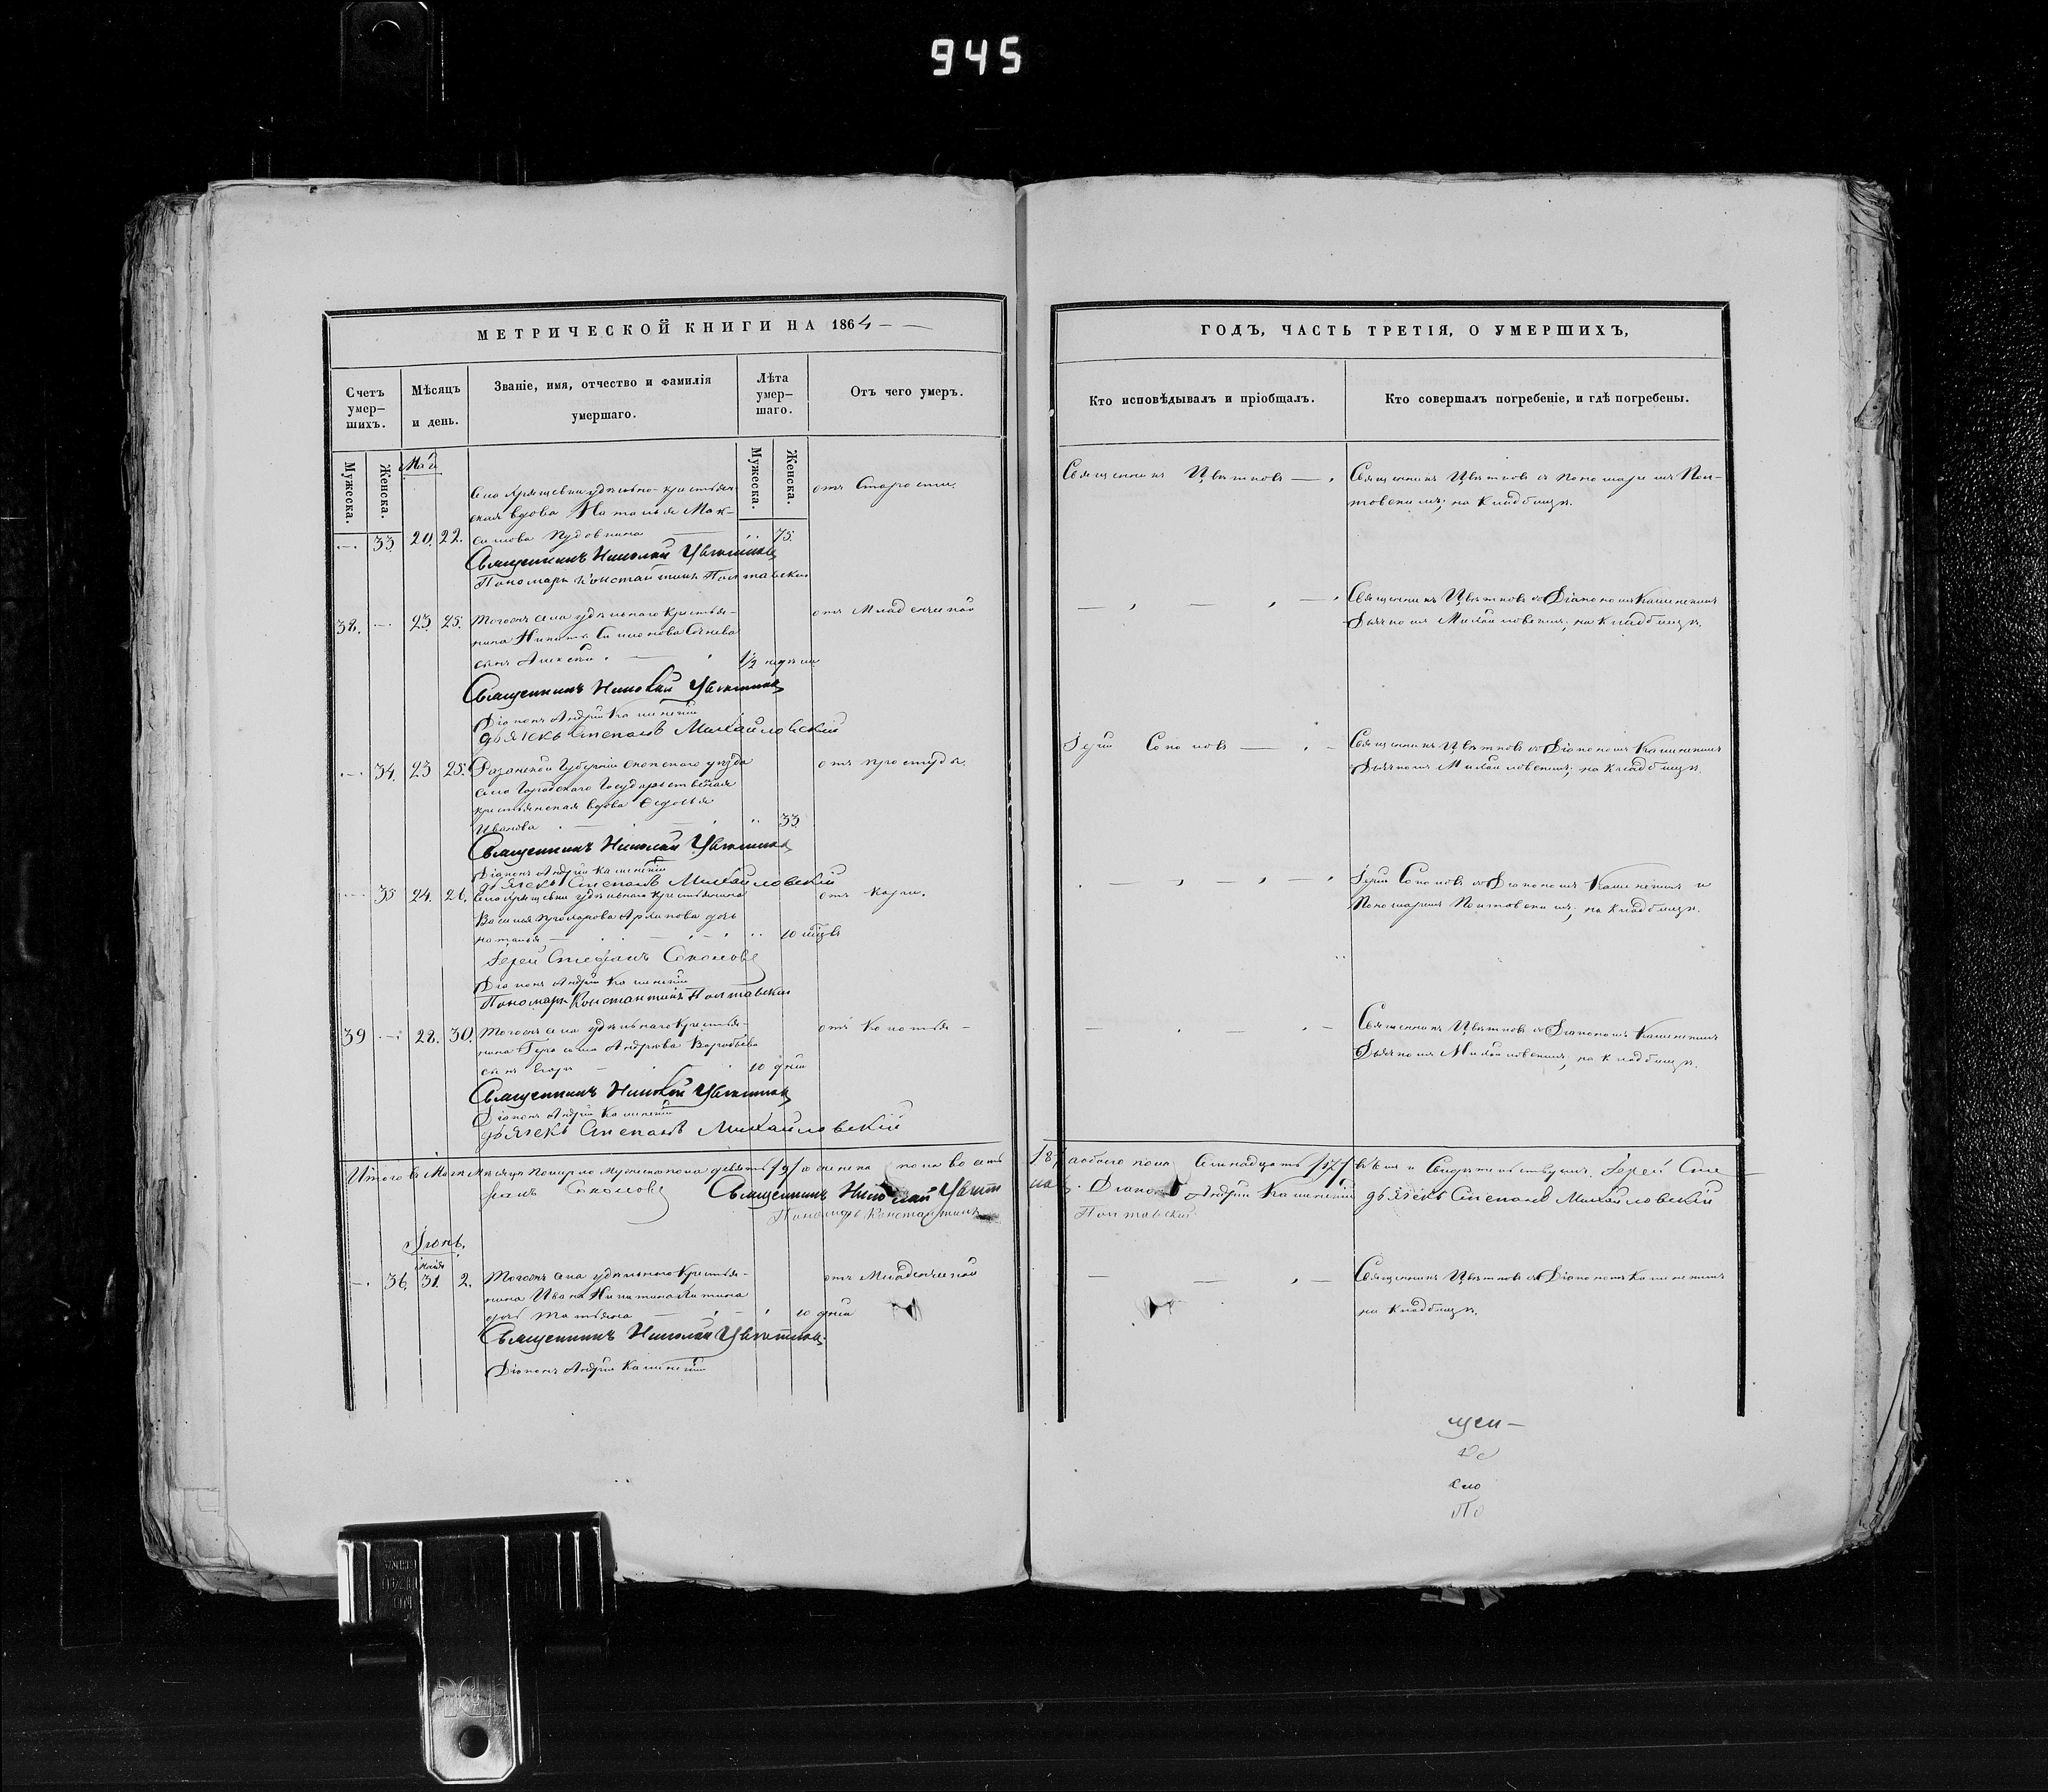 945
МЕТРИЧЕСКОЙ КНИГИ НА 1864
Счетъ умер-шихъ.
Мѣсяцъ и день.
Званіе, имя, отчество и фамилія умершаго.
Лѣта умер-шаго.
Отъ чего умеръ.
Мужеска.
Женска.
Мужеска.
Женска.
Май
села удѣльно-крестьян-
ская вдова Наталья Мак-
33 20. 22. симова 75.
отъ Старости.
Священникъ Николай Цвѣтковъ
Пономарь Константинъ Полтавскій
38. 23. 25. Тогожъ села удѣльнаго крестья-
нина Никиты Симіонова
сынъ Алексѣй 1/2 недѣли
отъ Младенческой
Священникъ Николай Цвѣтковъ
Діаконъ Андрей
Дьячекъ Степанъ Михайловскій
34. 23 25. Рязанской Губерніи Скопскаго уѣзда
села Государственная
крестьянская вдова Ѳедосья
Иванова 33.
отъ простуды.
Священникъ Николай Цвѣтковъ
Діаконъ Андрей
Дьячекъ Степанъ Михайловскій
35 24. 26. села удѣльнаго крестьянина
Василья Архипова дочь
Наталья 10 мѣсяц
отъ кори.
Іерей Стефанъ Соколовъ
Діаконъ Андрей
Пономарь Константинъ Полтавскій
39 28. 30. Тогожъ села удѣльнаго крестья-
нина Герасима Андреева Воробьева
сынъ Егоръ 10 дней
отъ Колотья
Священникъ Николай Цвѣтковъ
Діаконъ Андрей
Дьячекъ Степанъ Михайловскій
Итого въ Маѣ Мѣсяцѣ померло мужеска пола девять /9/ женска пола восемь
Соколовъ Священникъ Николай Цвѣтк
Пономарь Константинъ
Іюнь.
Мая
36. 31. 2. Тогожъ села удѣльнаго крестья-
нина Ивана Никитина
дочь Татьяна 10 дней
отъ Младенческой
Священникъ Николай Цвѣтковъ
Діаконъ Андрей
ГОДЪ, ЧАСТЬ ТРЕТІЯ, О УМЕРШИХЪ,
Кто исповѣдывалъ и пріобщалъ.
Кто совершалъ погребеніе, и гдѣ погребены.
Священникъ Цвѣтковъ
Священникъ Цвѣтковъ съ пономаремъ Пол-
тавскимъ; на кладбищѣ.
Священникъ Цвѣтковъ съ Діакономъ
Дьячкомъ Михайловскимъ; на кладбищѣ.
Іерей Соколовъ
Священникъ Цвѣтковъ съ Діакономъ
Дьячкомъ Михайловскимъ; на кладбищѣ.
Іерей Соколовъ съ Діакономъ и
Пономаремъ Полтавскимъ; на кладбищѣ.
Священникъ Цвѣтковъ съ Діакономъ
Дьячкомъ Михайловскимъ; на кладбищѣ.
/8/ а обоего пола Семнадцать /17/ Свидѣтельствуемъ. Іерей Сте
Діаконъ Андрей Дьячекъ Степанъ Михайловскій
Полтавскій
Священникъ Цвѣтковъ съ Діакономъ
на кладбищѣ.
сло
По